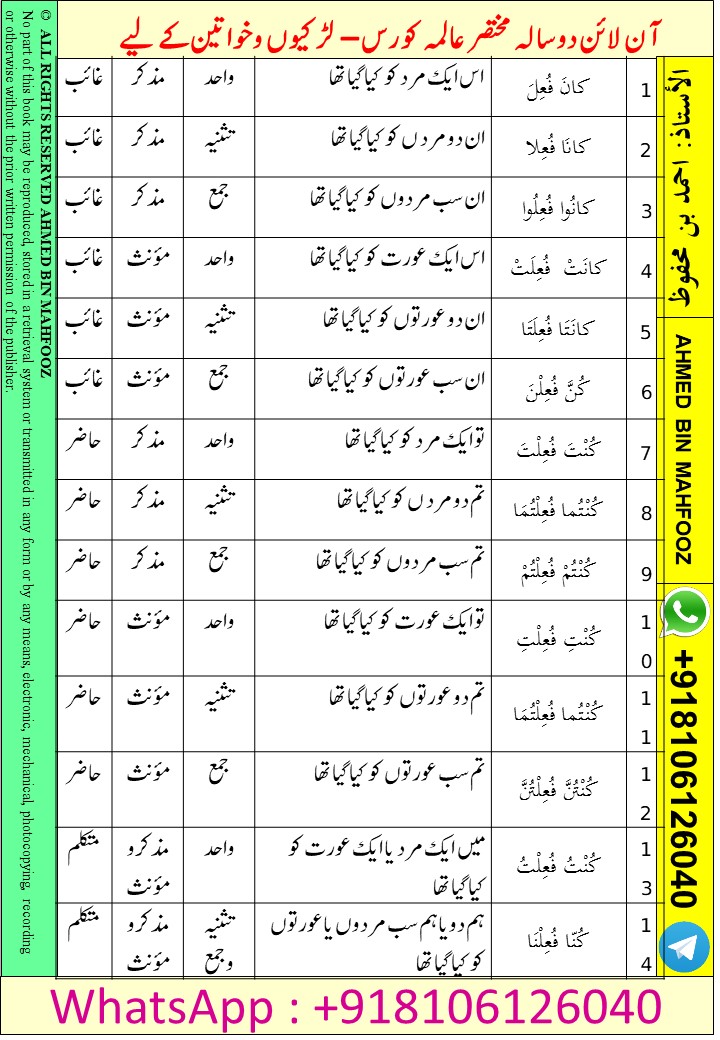 آن لائن دو سالہ مختصر عالمہ کورس – لڑکیوں و خواتین کے لیے
1 كانَ فُعِلَ اس ایک مرد کو کیا گیا تھا واحد مذکر غائب
2 كانَا فُعِلا ان دو مردں کو کیا گیا تھا تثنیہ مذکر غائب
3 كانُوا فُعِلُوا ان سب مردوں کو کیا گیا تھا جمع مذکر غائب
4 كانَتْ فُعِلَتْ اس ایک عورت کو کیا گیا تھا واحد مؤنث غائب
5 كانَتَا فُعِلَتَا ان دو عورتوں کو کیا گیا تھا تثنیہ مؤنث غائب
6 كُنَّ فُعِلْنَ ان سب عورتوں کو کیا گیا تھا جمع مؤنث غائب
7 كُنْتَ فُعِلْتَ تو ایک مرد کو کیا گیا تھا واحد مذکر حاضر
8 كُنْتُما فُعِلْتُمَا تم دو مردں کو کیا گیا تھا تثنیہ مذکر حاضر
9 كُنْتُمْ فُعِلْتُمْ تم سب مردوں کو کیا گیا تھا جمع مذکر حاضر
10 كُنْتِ فُعِلْتِ تو ایک عورت کو کیا گیا تھا واحد مؤنث حاضر
11 كُنْتُما فُعِلْتُمَا تم دو عورتوں کو کیا گیا تھا تثنیہ مؤنث حاضر
12 كُنْتُنَّ فُعِلْتُنَّ تم سب عورتوں کو کیا گیا تھا جمع مؤنث حاضر
13 كُنْتُ فُعِلْتُ میں ایک مرد یا ایک عورت کو واحد مذکر و متکلم
کیا گیا تھا مؤنث
14 كُنّا فُعِلْنَا ہم دو یا ہم سب مردوں یا عورتوں تثنیہ مذکر و متکلم
کو کیا گیا تھا و جمع مؤنث
الأستاذ: احمد بن محفوظ
AHMED BIN MAHFOOZ
+918106126040
© ALL RIGHTS RESERVED AHMED BIN MAHFOOZ
No part of this book may be reproduced, stored in a retrieval system or transmitted in any form or by any means, electronic, mechanical, photocopying, recording
or otherwise without the prior written permission of the publisher.
WhatsApp : +918106126040